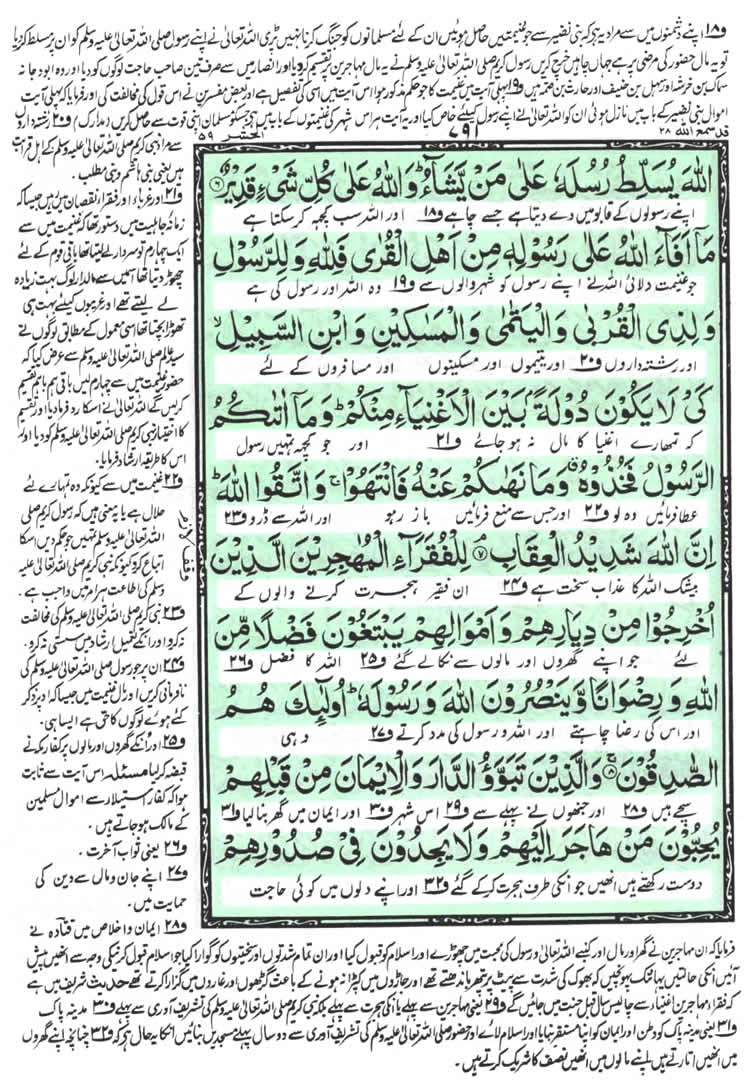 و۱۸ اپنے دشمنوں میں سے مراد یہ ہے کہ بنی نضیر سے جو غنیمتیں حاصل ہوئیں ان کے لئے مسلمانوں کو جنگ کرنا نہیں پڑی اللہ تعالیٰ نے اپنے رسول صلی اللہ تعالیٰ علیہ وسلم کو ان پر مسلط کر دیا
تو یہ مال حضور کی مرضی پر ہے جہاں چاہیں خرچ کریں رسول کریم صلی اللہ تعالیٰ علیہ وسلم نے یہ مال مہاجرین پر تقسیم کر دیا اور انصار میں سے صرف تین صاحب حاجت لوگوں کو دیا اور وہ ابودجانہ
سماک بن خرشہ اور سہل بن حنیف اور حارث بن صمہ ہیں و۱۹ پہلی آیت میں غنیمت کا جو حکم مذکور ہوا اس آیت میں اسی کی تفصیل ہے اور بعض مفسرین نے اس قول کی مخالفت کی اور فرمایا کہ پہلی آیت
اموال بنی نضیر کے باب میں نازل ہوئی ان کو اللہ تعالیٰ نے اپنے رسول کیلئے خاص کیا اور یہ آیت ہر اس شہر کی غنیمتوں کے باب میں ہے جسکو مسلمان اپنی قوت سے حاصل کریں (مدارک) و۲۰ رشتہ داروں
قد سمع الله ۲۸
۷۹۱
الحشر ۵۹
اللهَ يُسَلِّطُ رُسُلَهٗ عَلٰى مَنْ يَّشَآءُ ؕ وَاللهُ عَلٰى كُلِّ شَىْءٍ قَدِيْرٌ ﴿۶﴾
اپنے رسولوں کے قابو میں دے دیتا ہے جسے چاہے و۱۸ اور اللہ سب کچھ کر سکتا ہے
مَآ اَفَآءَ اللهُ عَلٰى رَسُوْلِهٖ مِنْ اَهْلِ الْقُرٰى فَلِلّٰهِ وَلِلرَّسُوْلِ
جو غنیمت دلائی اللہ نے اپنے رسول کو شہر والوں سے و۱۹ وہ اللہ اور رسول کی ہے
وَلِذِى الْقُرْبٰى وَالْيَتٰمٰى وَالْمَسٰكِيْنِ وَابْنِ السَّبِيْلِ ۙ
اور رشتہ داروں و۲۰ اور یتیموں اور مسکینوں اور مسافروں کے لئے
كَىْ لَا يَكُوْنَ دُوْلَةًۢ بَيْنَ الْاَغْنِيَآءِ مِنْكُمْ ؕ وَمَآ اٰتٰىكُمُ
کہ تمہارے اغنیا کا مال نہ ہو جائے و۲۱ اور جو کچھ تمہیں رسول
الرَّسُوْلُ فَخُذُوْهُ ۚ وَمَا نَهٰىكُمْ عَنْهُ فَانْتَهُوْا ۚ وَاتَّقُوا اللهَ ؕ
عطا فرمائیں وہ لو و۲۲ اور جس سے منع فرمائیں باز رہو اور اللہ سے ڈرو و۲۳
اِنَّ اللهَ شَدِيْدُ الْعِقَابِ ﴿۷﴾ لِلْفُقَرَآءِ الْمُهٰجِرِيْنَ الَّذِيْنَ
بیشک اللہ کا عذاب سخت ہے و۲۴ ان فقیر ہجرت کرنے والوں کے
اُخْرِجُوْا مِنْ دِيَارِهِمْ وَاَمْوَالِهِمْ يَبْتَغُوْنَ فَضْلًا مِّنَ
لئے جو اپنے گھروں اور مالوں سے نکالے گئے و۲۵ اللہ کا فضل و۲۶
اللهِ وَرِضْوَانًا وَّيَنْصُرُوْنَ اللهَ وَرَسُوْلَهٗ ؕ اُولٰٓئِكَ هُمُ
اور اس کی رضا چاہتے اور اللہ و رسول کی مدد کرتے و۲۷ وہی
الصّٰدِقُوْنَ ﴿۸﴾ وَالَّذِيْنَ تَبَوَّؤُ الدَّارَ وَالْاِيْمَانَ مِنْ قَبْلِهِمْ
سچے ہیں و۲۸ اور جنھوں نے پہلے سے و۲۹ اس شہر و۳۰ اور ایمان میں گھر بنا لیا و۳۱
يُحِبُّوْنَ مَنْ هَاجَرَ اِلَيْهِمْ وَلَا يَجِدُوْنَ فِىْ صُدُوْرِهِمْ
دوست رکھتے ہیں انھیں جو انکی طرف ہجرت کر کے گئے و۳۲ اور اپنے دلوں میں کوئی حاجت
سے مراد نبی کریم صلی اللہ تعالیٰ علیہ وسلم کے اہل قرابت
ہیں یعنی بنی ہاشم و بنی مطلب.
و۲۱ اور غرباء اور فقراء نقصان میں رہیں جیسا کہ
زمانۂ جاہلیت میں دستور تھا کہ غنیمت میں سے
ایک چہارم تو سردار لے لیتا تھا باقی قوم کے لئے
چھوڑ دیتا تھا اسمیں سے مالدار لوگ بہت زیادہ
لے لیتے تھے اور غریبوں کیلئے بہت ہی
تھوڑا بچتا تھا اسی معمول کے مطابق لوگوں نے
سید عالم صلی اللہ تعالیٰ علیہ وسلم سے عرض کیا کہ
حضور غنیمت میں سے چہارم لیں باقی ہم باہم تقسیم
کر لیں گے اللہ تعالیٰ نے اسکا رد فرما دیا اور تقسیم
کا اختیار نبی کریم صلی اللہ تعالیٰ علیہ وسلم کو دیا اور
اس کا طریقہ ارشاد فرمایا.
و۲۲ غنیمت میں سے کیونکہ وہ تمہارے لئے
حلال ہے یا یہ معنی ہیں کہ رسول کریم صلی
اللہ تعالیٰ علیہ وسلم تمہیں جو حکم دیں اسکا
اتباع کرو کیونکہ نبی کریم صلی اللہ تعالیٰ علیہ
وسلم کی طاعت ہر امر میں واجب ہے.
و۲۳ نبی کریم صلی اللہ تعالیٰ علیہ وسلم کی مخالفت
نہ کرو اور انکے تعمیل ارشاد میں سستی نہ کرو.
و۲۴ ان پر جو رسول صلی اللہ تعالیٰ علیہ وسلم کی
نافرمانی کریں اور مال غنیمت میں جیسا کہ اوپر ذکر
کئے ہوئے لوگوں کا حق ہے ایسا ہی.
و۲۵ اور انکے گھروں اور مالوں پر کفار مکہ نے
قبضہ کر لیا مسئلہ اس آیت سے ثابت
ہوا کہ کفار استیلاء سے اموال مسلمین
کے مالک ہو جاتے ہیں.
و۲۶ یعنی ثواب آخرت.
و۲۷ اپنے جان و مال سے دین کی
حمایت میں.
و۲۸ ایمان و اخلاص میں قتادہ نے
فرمایا کہ ان مہاجرین نے گھر اور مال اور کنبے اللہ تعالیٰ و رسول کی محبت میں چھوڑے اور اسلام کو قبول کیا اور ان تمام شدتوں اور سختیوں کو گوارا کیا جو اسلام قبول کرنیکی وجہ سے انھیں پیش
آئیں انکی حالتیں یہانتک پہونچیں کہ بھوک کی شدت سے پیٹ پر پتھر باندھتے تھے اور جاڑوں میں کپڑا نہ ہونے کے باعث گڑھوں اور غاروں میں گزارا کرتے تھے حدیث شریف میں ہے
کہ فقراء مہاجرین اغنیاء سے چالیس سال قبل جنت میں جائیں گے و۲۹ یعنی مہاجرین سے پہلے یا انکی ہجرت سے پہلے بلکہ نبی کریم صلی اللہ تعالیٰ علیہ وسلم کی تشریف آوری سے پہلے و۳۰ مدینہ پاک
و۳۱ یعنی مدینہ پاک کو وطن اور ایمان کو اپنا مستقر بنایا اور اسلام لائے اور حضور صلی اللہ تعالیٰ علیہ وسلم کی تشریف آوری سے دو سال پہلے مسجدیں بنائیں انکا یہ حال ہے کہ و۳۲ چنانچہ اپنے گھروں
میں انھیں اتارتے ہیں اپنے مالوں میں انھیں نصف کا شریک کرتے ہیں.